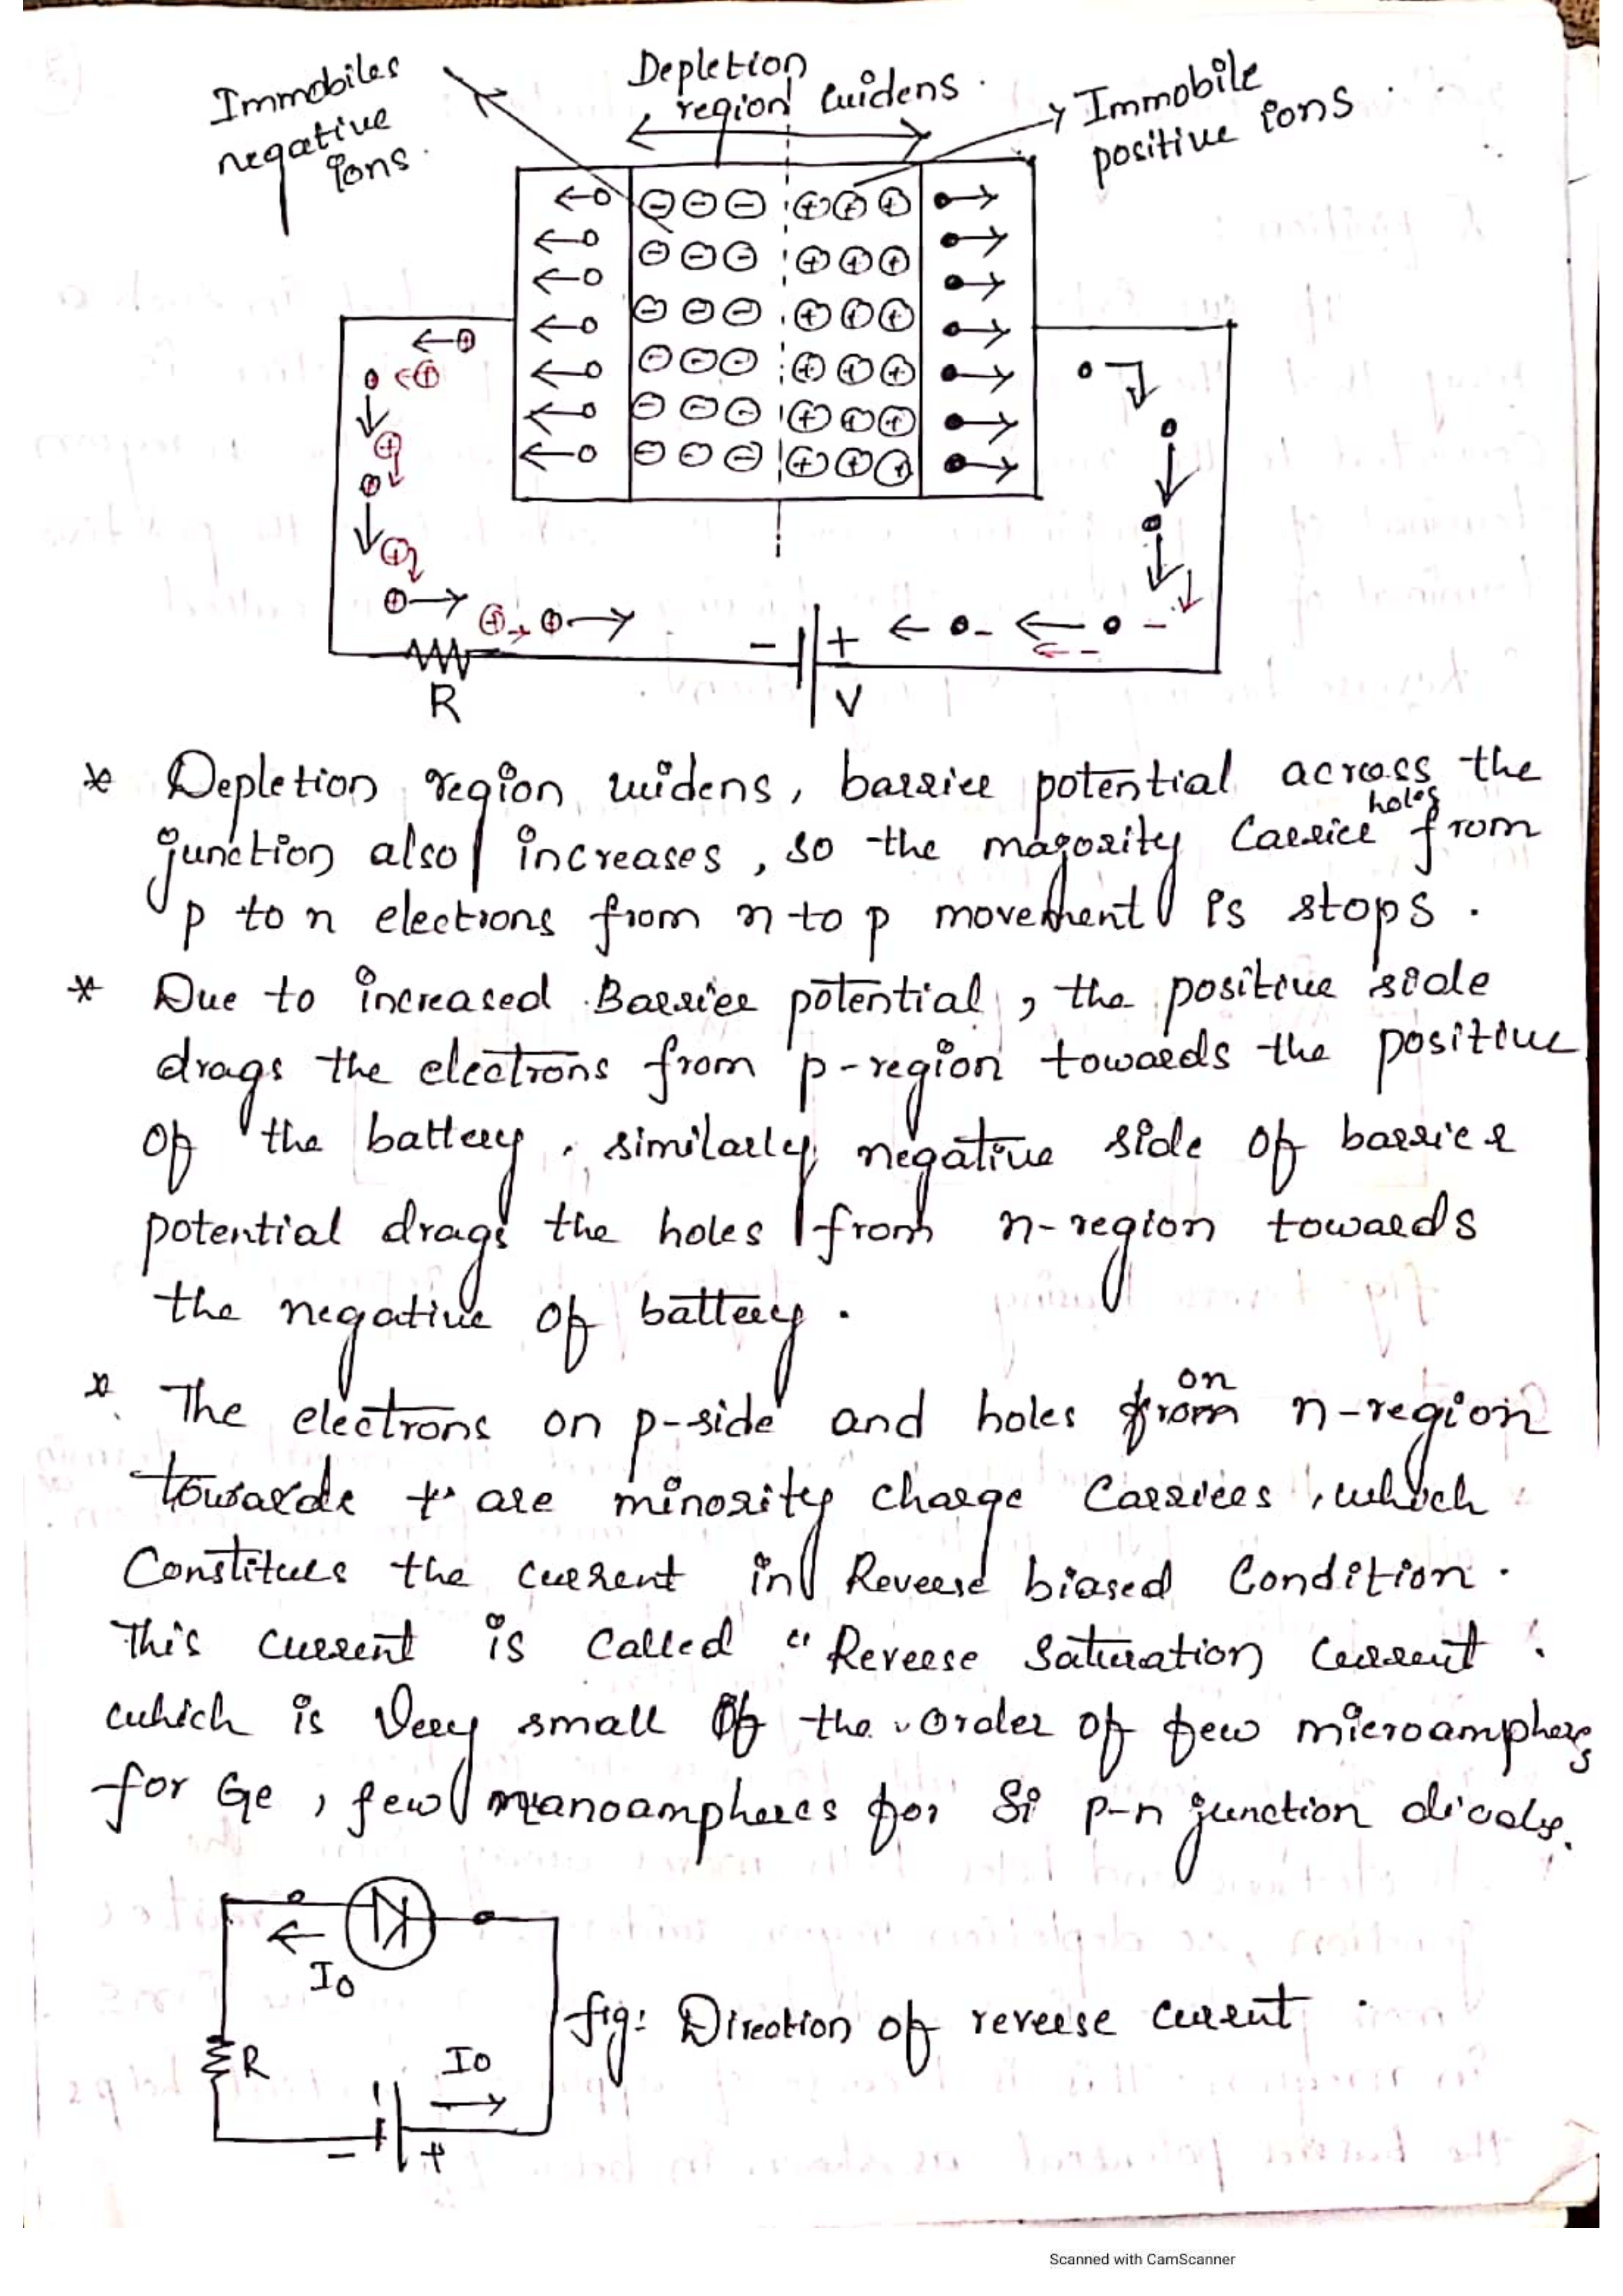 Immobiles
negative
ions.
Depletion
region widens.
Immobile
positive ions.
R
- +
V
* Depletion region widens, barrier potential across the
holes
junction also increases, so the majority Carrier from
p to n electrons from n to p movement is stops.
* Due to increased Barrier potential, the positive side
drags the electrons from p-region towards the positive
of the battery. similarly negative side of barrier
potential drags the holes from n-region towards
the negative of battery.
on
* The electrons on p-side and holes from n-region
towards + are minority charge Carriers, which
Constitues the current in Reverse biased Condition.
This current is Called "Reverse Saturation Current.
which is Very small of the order of few microampheres
for Ge, few nanoampheres for Si p-n junction
Io
R
Io
- +
fig: Direction of reverse current.
Scanned with CamScanner